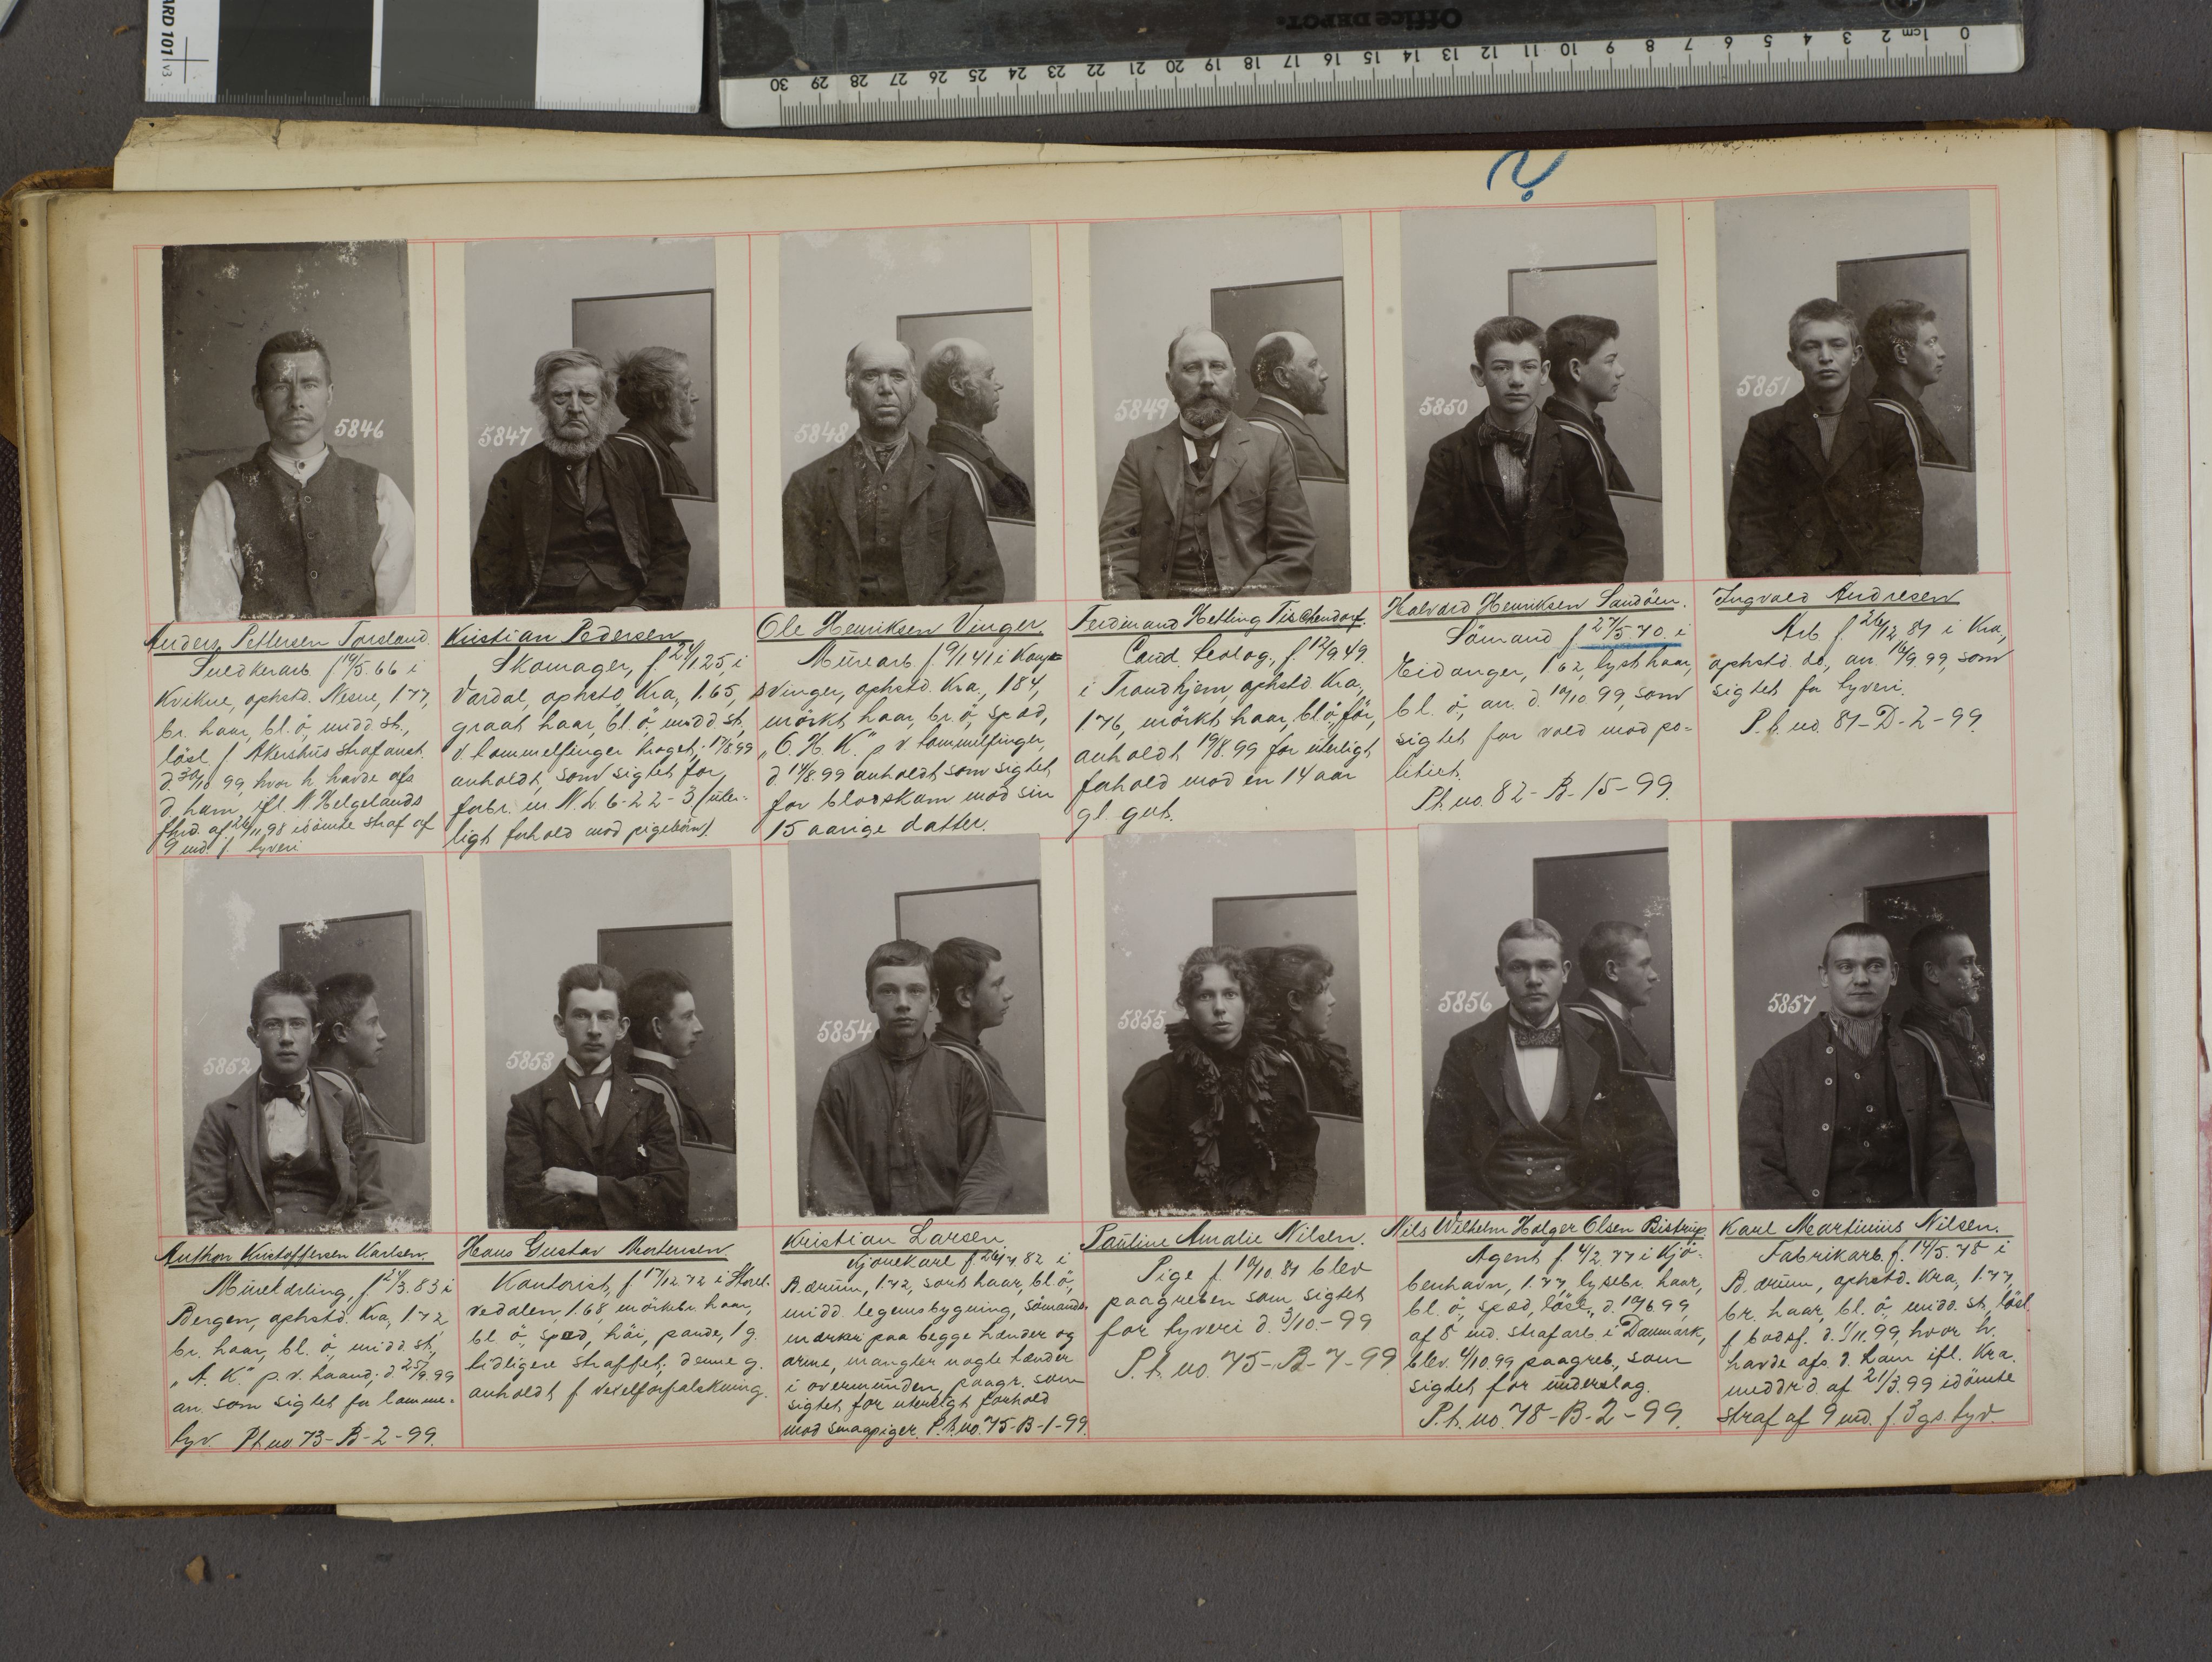 ARD 101 v3
Office DEPOT.
0 1cm 2 3 4 5 6 7 8 9 10 11 12 13 14 15 16 17 18 19 20 21 22 23 24 25 26 27 28 29 30
?
5846
5847
5848
5849
5850
5851
Anders Pettersen Torsland.
f 19/5.66 i
Kvikne, ophstd. Nesne, 177,
br. haar, bl. ö, midd st.,
lösl. f Akershus strafanst.
d. 30/10 99, hvor h havde afs
d. ham ifl. N. Helgelands
af 26/11.98 idömte straf af
9 md. f. tyveri
Kristian Pedersen
Skomager, f. 21/1 25, i
Vardal, ophstd Kra, 1.65,
graat haar, bl. ö, midd st,
v. tommelfinger kroget; 17/8.99
anholdt, som sigtet for
forbr. m N. L 6-22-3 (uter-
ligt forhold mod pigebörn)
Ole Henriksen Vinger.
Murarb. f. 9/1 41 i Kong-
svinger, ophstd. Kra., 184,
mörkt haar, br. ö, spæd,
"O. H. K." p v tommelfinger,
d 14/8.99 anholdt som sigtet
for blodskam mod sin
15 aarige datter.
Ferdinand Helling Tischendorf.
Cand. teolog., f. 12/9 49.
i Trondhjem, ophstd. Kra,
176, mörkt haar, bl. ö, för,
anholdt 19/8.99 for uterligt
forhold mod en 14 aar
gl. gut.
Halvard Henriksen Sandöen.
Sömand f 27/5.70. i
Eidanger, 162, lyst haar,
bl. ö, an. d. 10/10 99, som
sigtet for vold mod po-
litiet.
Ph. no. 82-B-15-99.
Ingvald Andresen
Arb f. 26/12 81 i Kra,
ophstd. do, an. 16/9 99, som
sigtet for tyveri.
P. h. no. 81-D-2-99.
5852
5853
5854
5855
5856
5857
Anthon Kristoffersen Karlsen.
Murlærling, f 24/3.83 i
Bergen, ophstd. Kra, 172,
br. haar, bl. ö, midd st,
"A. K." p. v. haand; d. 25/9.99
an. som sigtet for lomme-
tyv. Ph no. 73-B-2-99.
Hans Gustav Mortensen
Kontorist, f 17/12 72 i Höland.
vedalen, 1.68, mörkebr. haar,
bl. ö, spæd, höi, pande, 1 g.
tidligere straffet; denne g.
anholdt f vexelforfalskning.
Kristian Larsen
Kjörekarl f. 26/7. 82 i
Bærum, 1.72, sort haar, bl. ö,
midd legemsbygning, sömands
mærker paa begge hænder og
arme, mangler nogle tænder
i overmunden, paagr. som
sigtet for uterligt forhold
mod smaapiger. P. h. no. 75-B-1-99.
Pauline Amalie Nilsen.
Pige f. 10/10 81 blev
paagreben som sigtet
for tyveri d. 3/10-99
P. h. no. 75-B-7-99
Nils Wilhelm Holger Olsen Bistrup.
Agent f. 4/2 77 i Kjö-
benhavn, 1.77, lysebr. haar,
bl. ö, spæd, lösl., d. 10/6.99,
af 8 md. strafarb. i Danmark,
blev. 4/10.99 paagreb, som
sigtet for underslag.
P. h. no. 78-B-2-99.
Karl Martinius Nilsen.
Fabrikarb. f. 14/5.78 i
Bærum, ophstd. Kra, 1.77,
br. haar, bl. ö, midd. st, lösl.
f bodsf. d. 1/11.99, hvor h.
havde afs. d. ham ifl. Kra.
meddrd. af 21/3.99 idömte
straf af 9 md. f. 3 gs. tyv.